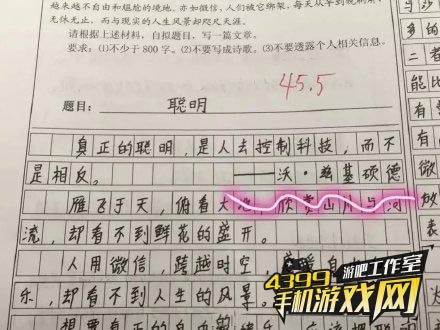 越来越不自由和尴尬的境地。亦如微信,人们被它绑架,每天从早到晚刷屏,
无休无止,而与现实的人生风景却咫尺天涯。
请根据上述材料,自拟题目,写一篇文章。
要求:(1)不少于800字。(2)不要写成诗歌。(3)不要透露个人相关信息。
45.5
题目: 聪明
真正的聪明,是人去控制科技,而不
是相反。 ——沃·兹基硕德
雁飞于天,俯看大地,欣赏山川与河
流,却看不到鲜花的盛开。
人用微信,跨越时空
乐,却看不到人生的风景。
想要真正的自由的
与
多的
二者
能比
有
微
够
表
4399 游吧工作室
手机游戏网